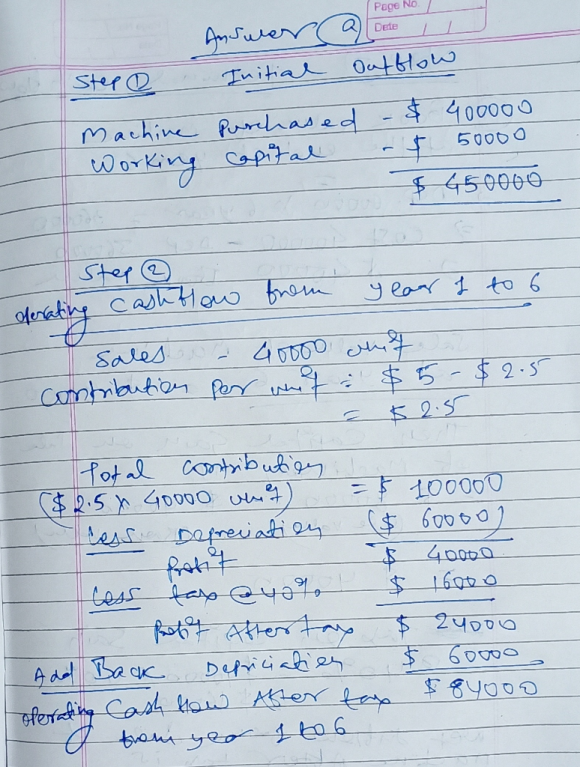 Page No
Date
Answer (a)
Step ① Initial Outflow
Machine Purchased - $ 400000
Working capital - $ 50000
$ 450000
Step ②
operating cashflow from year 1 to 6
Sales - 40000 unit
Contribution Per unit : $ 5 - $ 2.5
= $ 2.5
Total contribution
($ 2.5 x 40000 unit) = $ 100000
Less Depreciation ($ 60000)
Profit $ 40000
Less tax @ 40% $ 16000
Profit After tax $ 24000
Add Back Depriciation $ 60000
operating Cash flow After tax $ 84000
from year 1 to 6